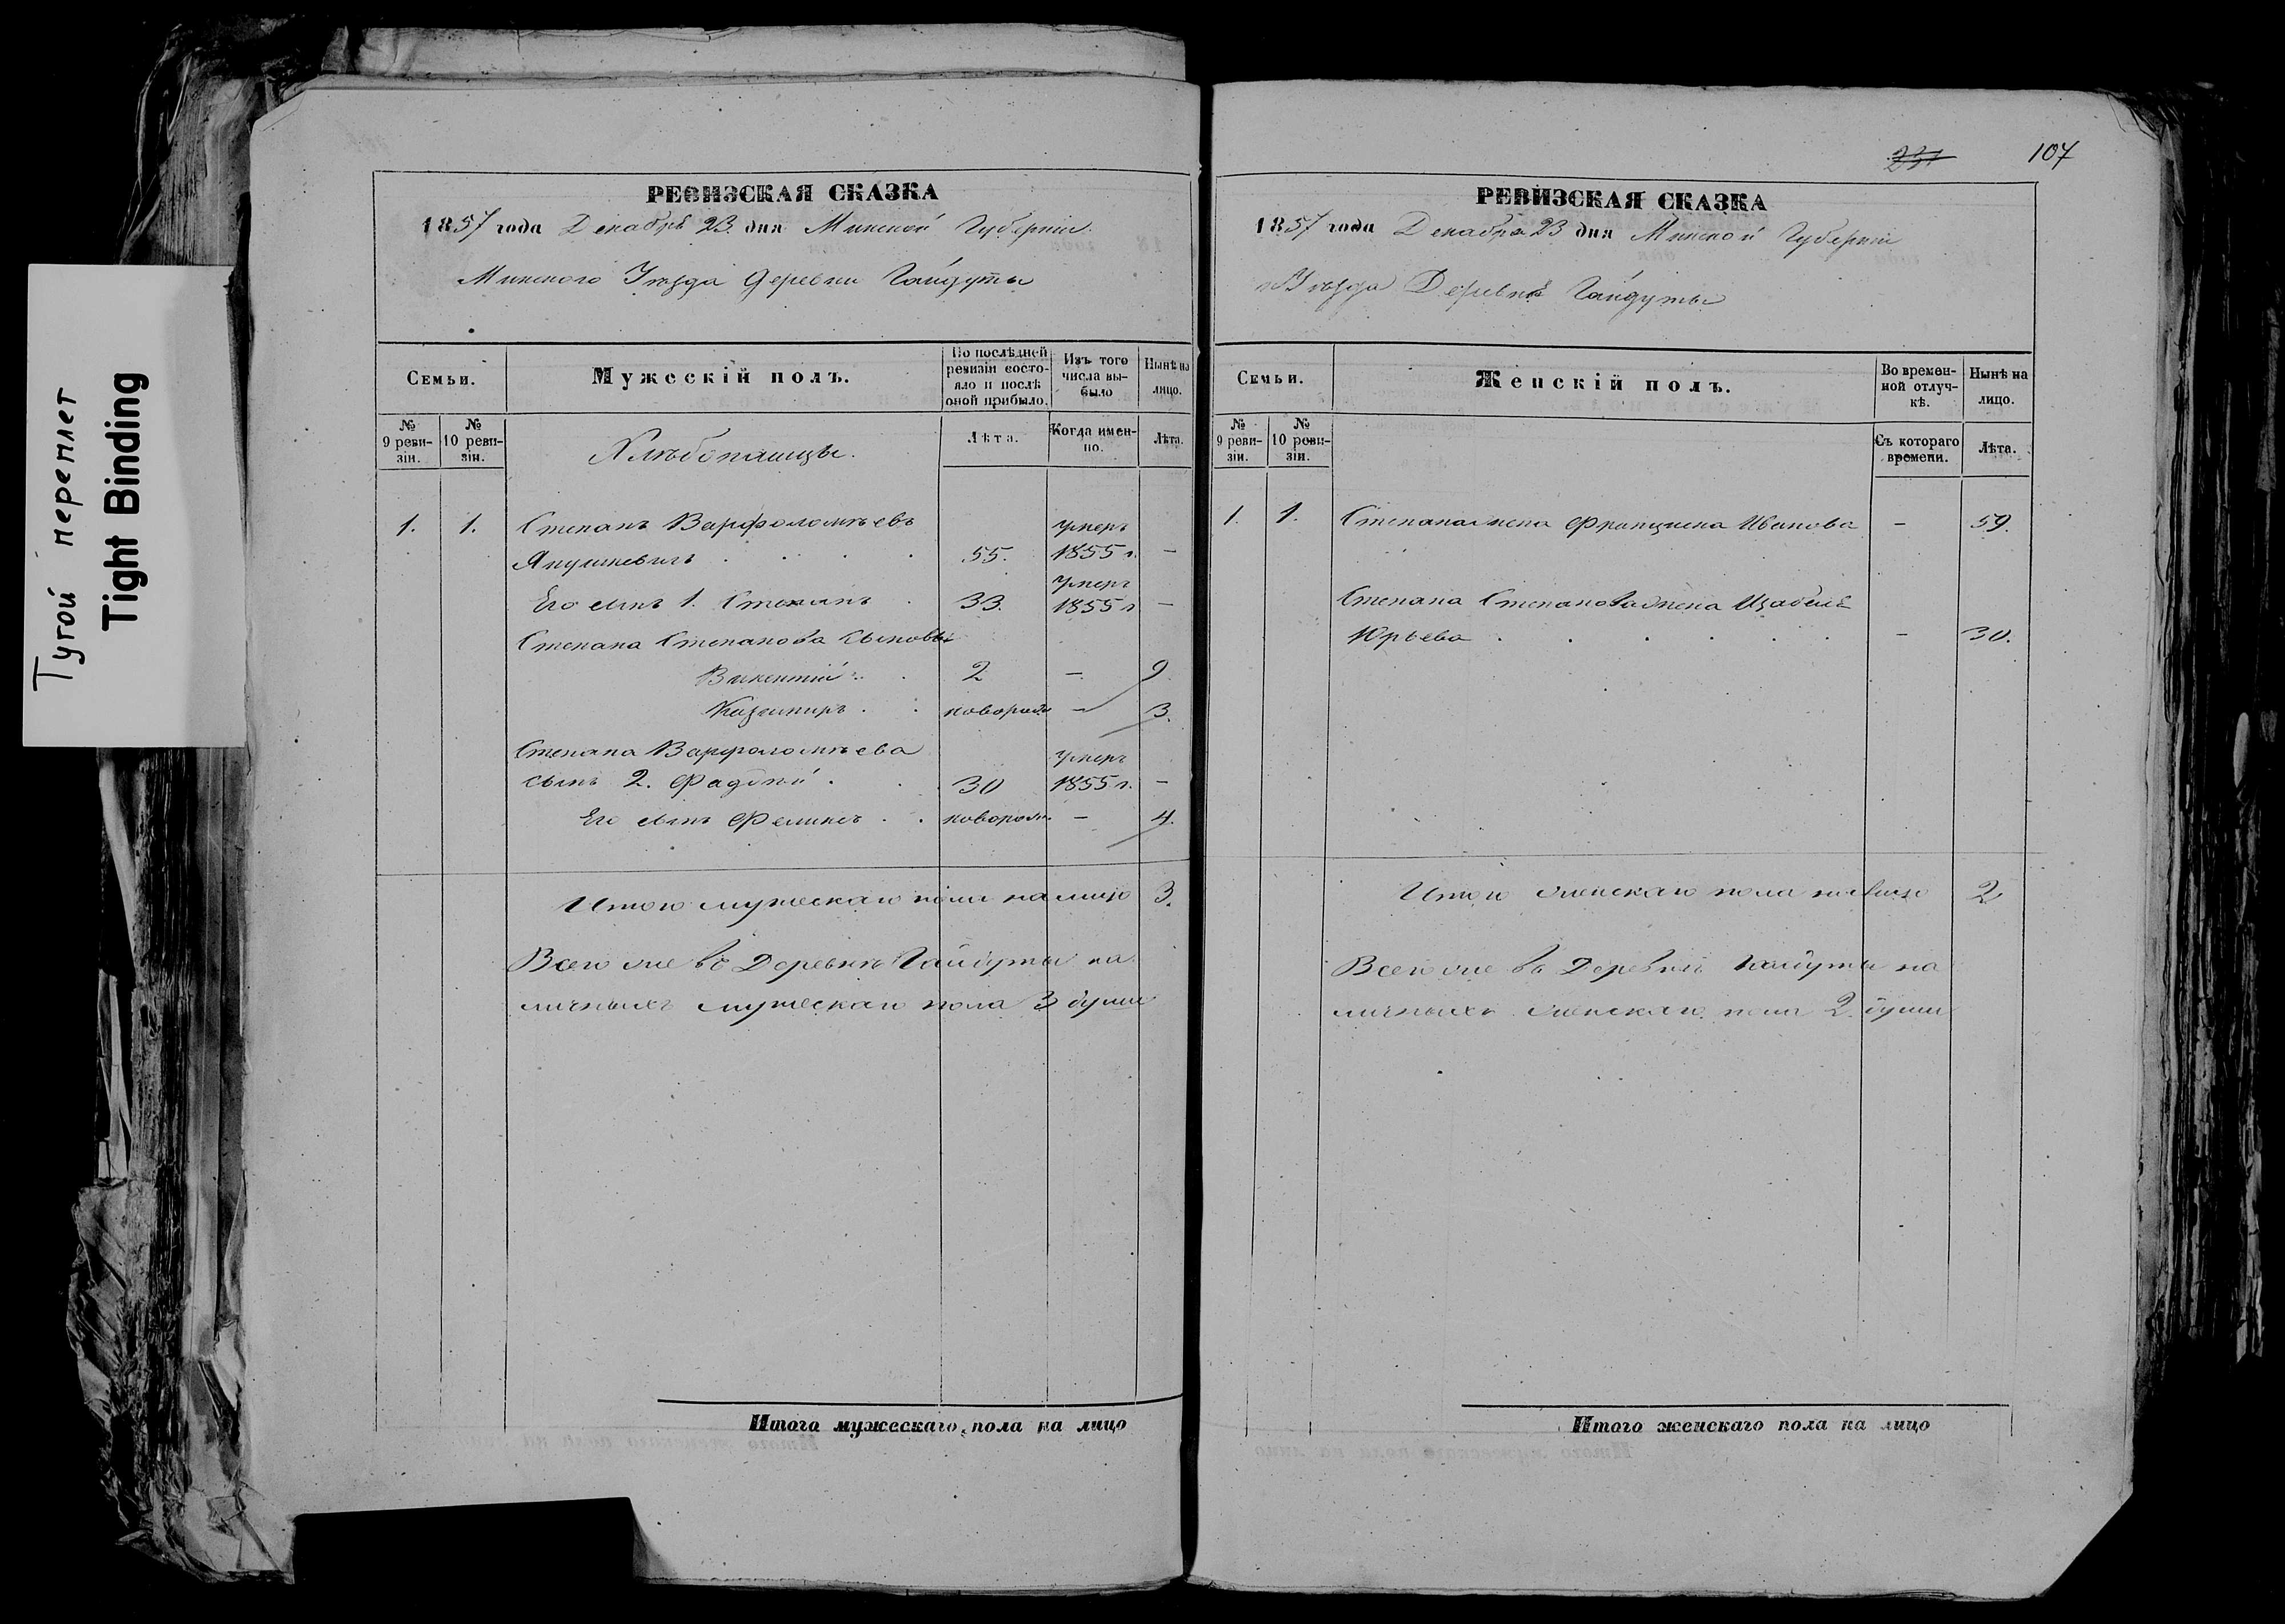 Тугой переплет
Tight Binding
РЕВИЗСКАЯ СКАЗКА
1857 года Декабря 23 дня Минской Губерніи
Минского Уѣзда Деревни Гайдуты
Семьи.
Мужескій полъ.
По послѣдней ревизіи состояло и послѣ оной прибыло.
Изъ того числа выбыло
Нынѣ на лицо.
№ 9 ревизіи.
№ 10 ревизіи.
Хлѣбопашцы.
Лѣта.
Когда именно.
Лѣта.
1. 1. Степанъ Варфоломѣевъ умеръ
Янушкевичъ 55. 1855 г. –
умеръ
Его сынъ 1. Степанъ 33. 1855 г –
Степана Степанова сыновья
Викентій 2 – 9
Казимиръ новорожд – 3.
Степана Варфоломѣева умеръ
сынъ 2. Фадѣй 30 1855 г. –
Его сынъ Феликсъ новорож. – 4.
Итого мужескаго пола на лицо 3.
Всего же въ Деревнѣ Гайдуты на
личныхъ мужескаго пола 3 души
Итого мужескаго пола на лицо
231
107
РЕВИЗСКАЯ СКАЗКА
1857 года Декабря 23 дня Минской Губерніи
Уѣзда Деревни Гайдуты
Семьи.
Женскій полъ.
Во временной отлучкѣ.
Нынѣ на лицо.
№ 9 ревизіи.
№ 10 ревизіи.
Съ котораго времени.
Лѣта.
1. 1. Степана жена Францишка Иванова – 59.
Степана Степанова жена Изабеля
Юрьева – 30.
Итого женскаго пола на лицо 2
Всего же въ Деревнѣ Гайдуты на
личныхъ женскаго пола 2 души
Итого женскаго пола на лицо